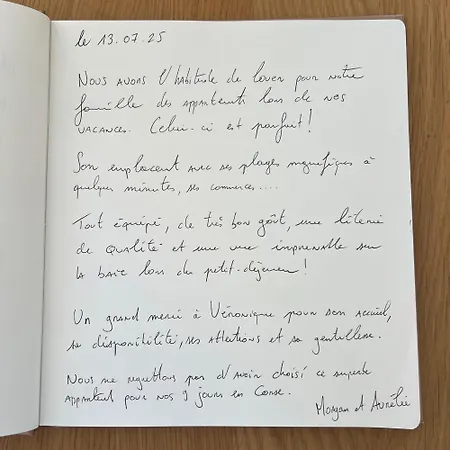 le 13.07.25
Nous avons l'habitude de louer pour notre
famille des appartements lors de nos
vacances. Celui-ci est parfait !
Son emplacement avec ses plages magnifiques à
quelques minutes, ses commerces....
Tout équipé, de très bon goût, une literie
de qualité et une vue imprenable sur
la baie lors du petit-déjeuner !
Un grand merci à Véronique pour son accueil,
sa disponibilité, ses attentions et sa gentillesse.
Nous ne regrettons pas d'avoir choisi ce superbe
appartement pour nos 9 jours en Corse.
Morgan et Aurélie